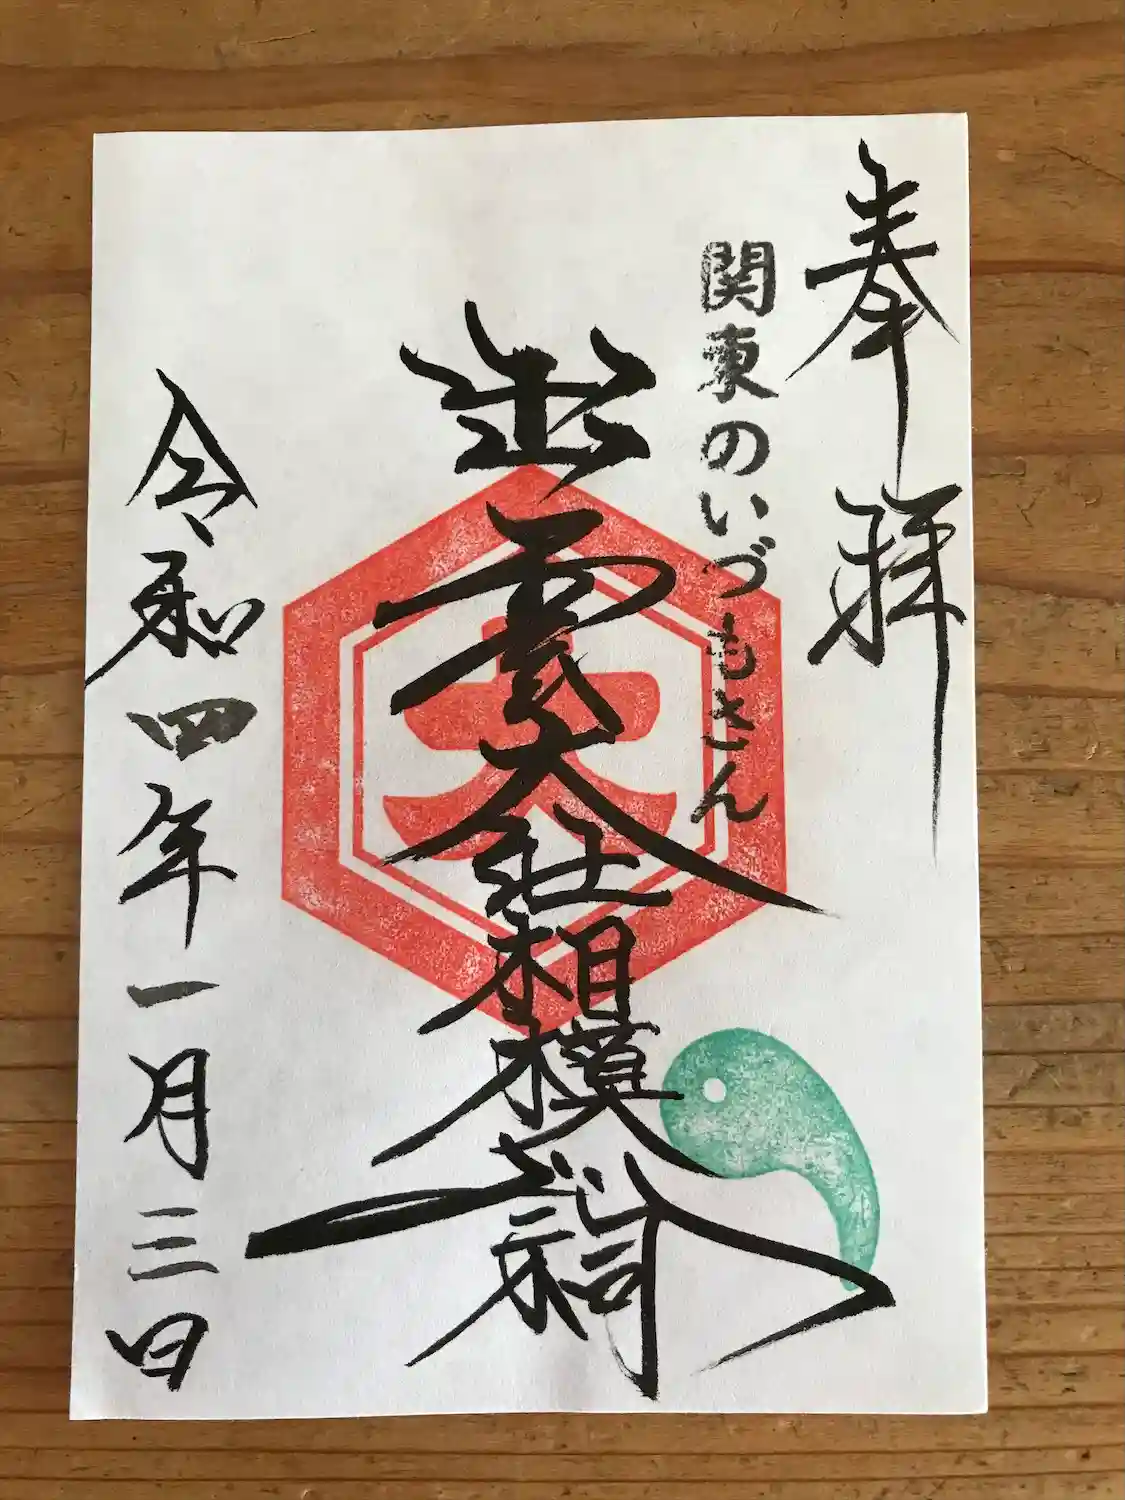 奉拝
関東のいづもさん
出雲大社相模分祠
大
令和四年一月三日